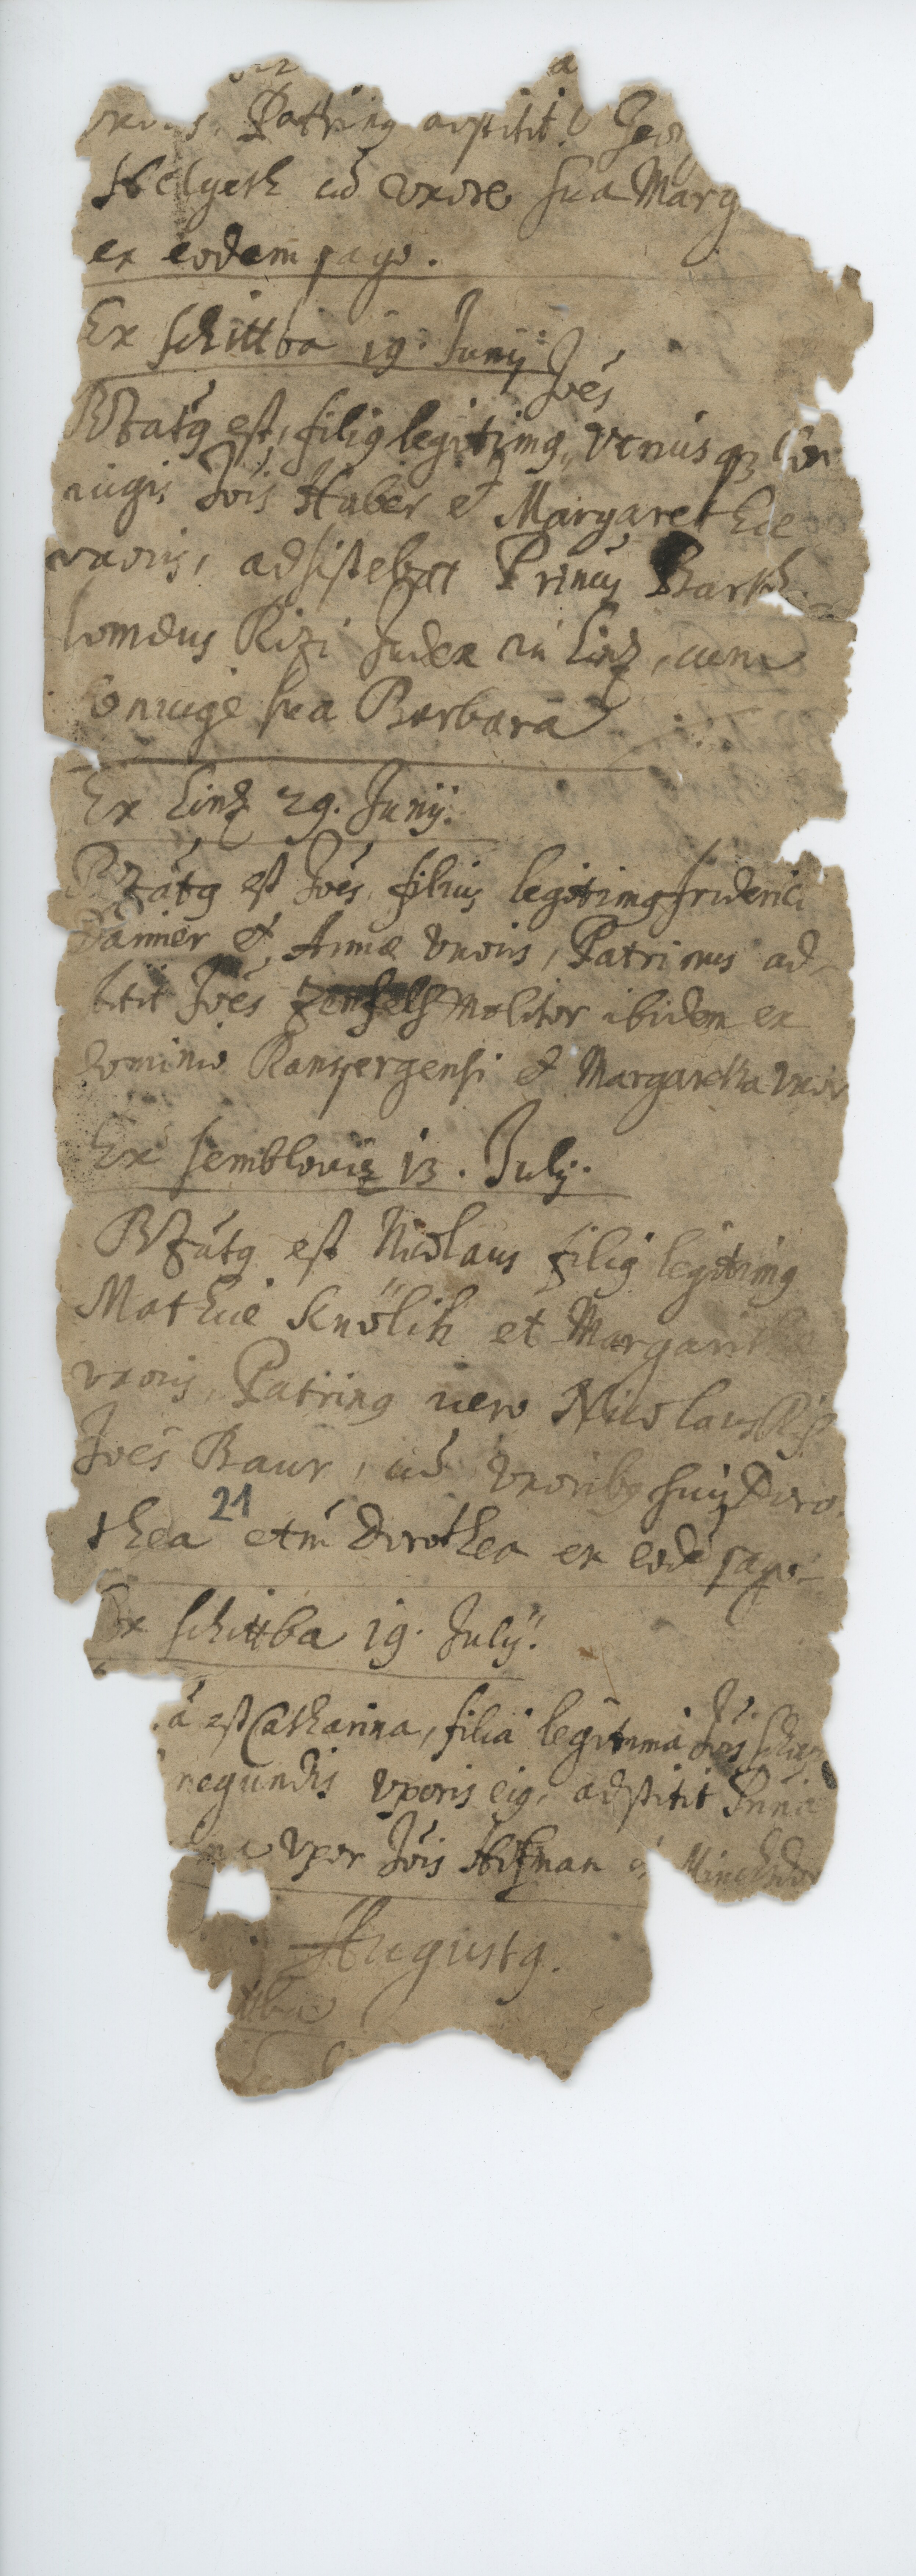 Patring astitit
Helgeth cū vxore sua Marg
ex eodem pago.
Ex Schittba 19. Junij
Joēs
Bzatg est, filig legitimg, vtriusqз Con
iugis Jōis Huber et Margarethae
vxoris, adsistebat Prinus Barth
lomeus Rizi Judex in Linz, cum
Coniuge sua Barbara
Ex Linz 29. Junij.
Bzatg est Joēs filius legitimg Friderici
et Annae vxoris, Patrinus ad
stitit Joēs Molitor ibidem ex
dominio Ronspergensi et Margaretha vxor
Ex Semblouiz 13. Julij.
Bzatg est Nicolaus filig legitimg
Mathiae Knölik et Margaritha
vxoris, Patring vero Nicolaus
Joēs Baur, cū vxoribg suis Doro
thea etm̄ Dorothea ex eodē pago
21
Ex Schittba 19. Julij.
a est Catharina, filia legitima Jōis
negundis vxoris eig, adstitit
vxor Jōis Hofman
Augustg.